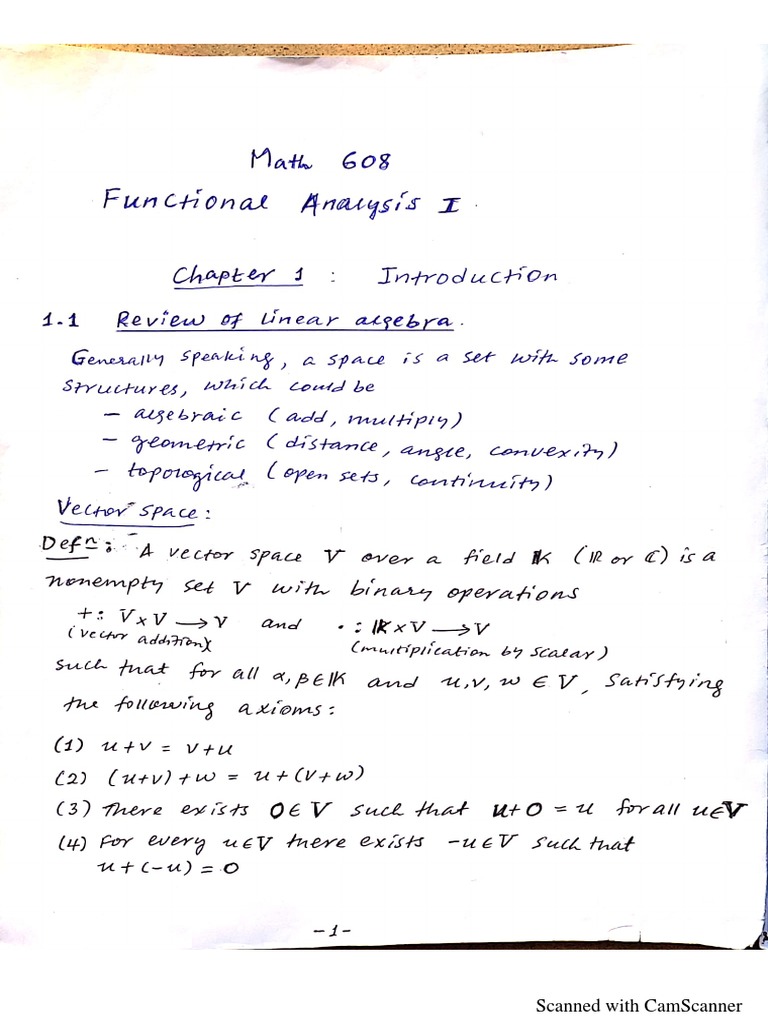 Math 608
Functional Analysis I.
Chapter 1 : Introduction
1.1 Review of linear algebra.
Generally speaking, a space is a set with some
structures, which could be
– algebraic (add, multiply)
– geometric (distance, angle, convexity)
– topological (open sets, continuity)
Vector space:
Defn: A vector space V over a field 𝕂 (ℝ or ℂ) is a
nonempty set V with binary operations
+: V×V → V and ·: 𝕂×V → V
(vector addition) (multiplication by scalar)
such that for all α, β ∈ 𝕂 and u, v, w ∈ V, satisfying
the following axioms:
(1) u+v = v+u
(2) (u+v)+w = u+(v+w)
(3) There exists 0∈V such that u+0 = u for all u∈V
(4) For every u∈V there exists -u∈V such that
u+(-u) = 0
-1-
Scanned with CamScanner